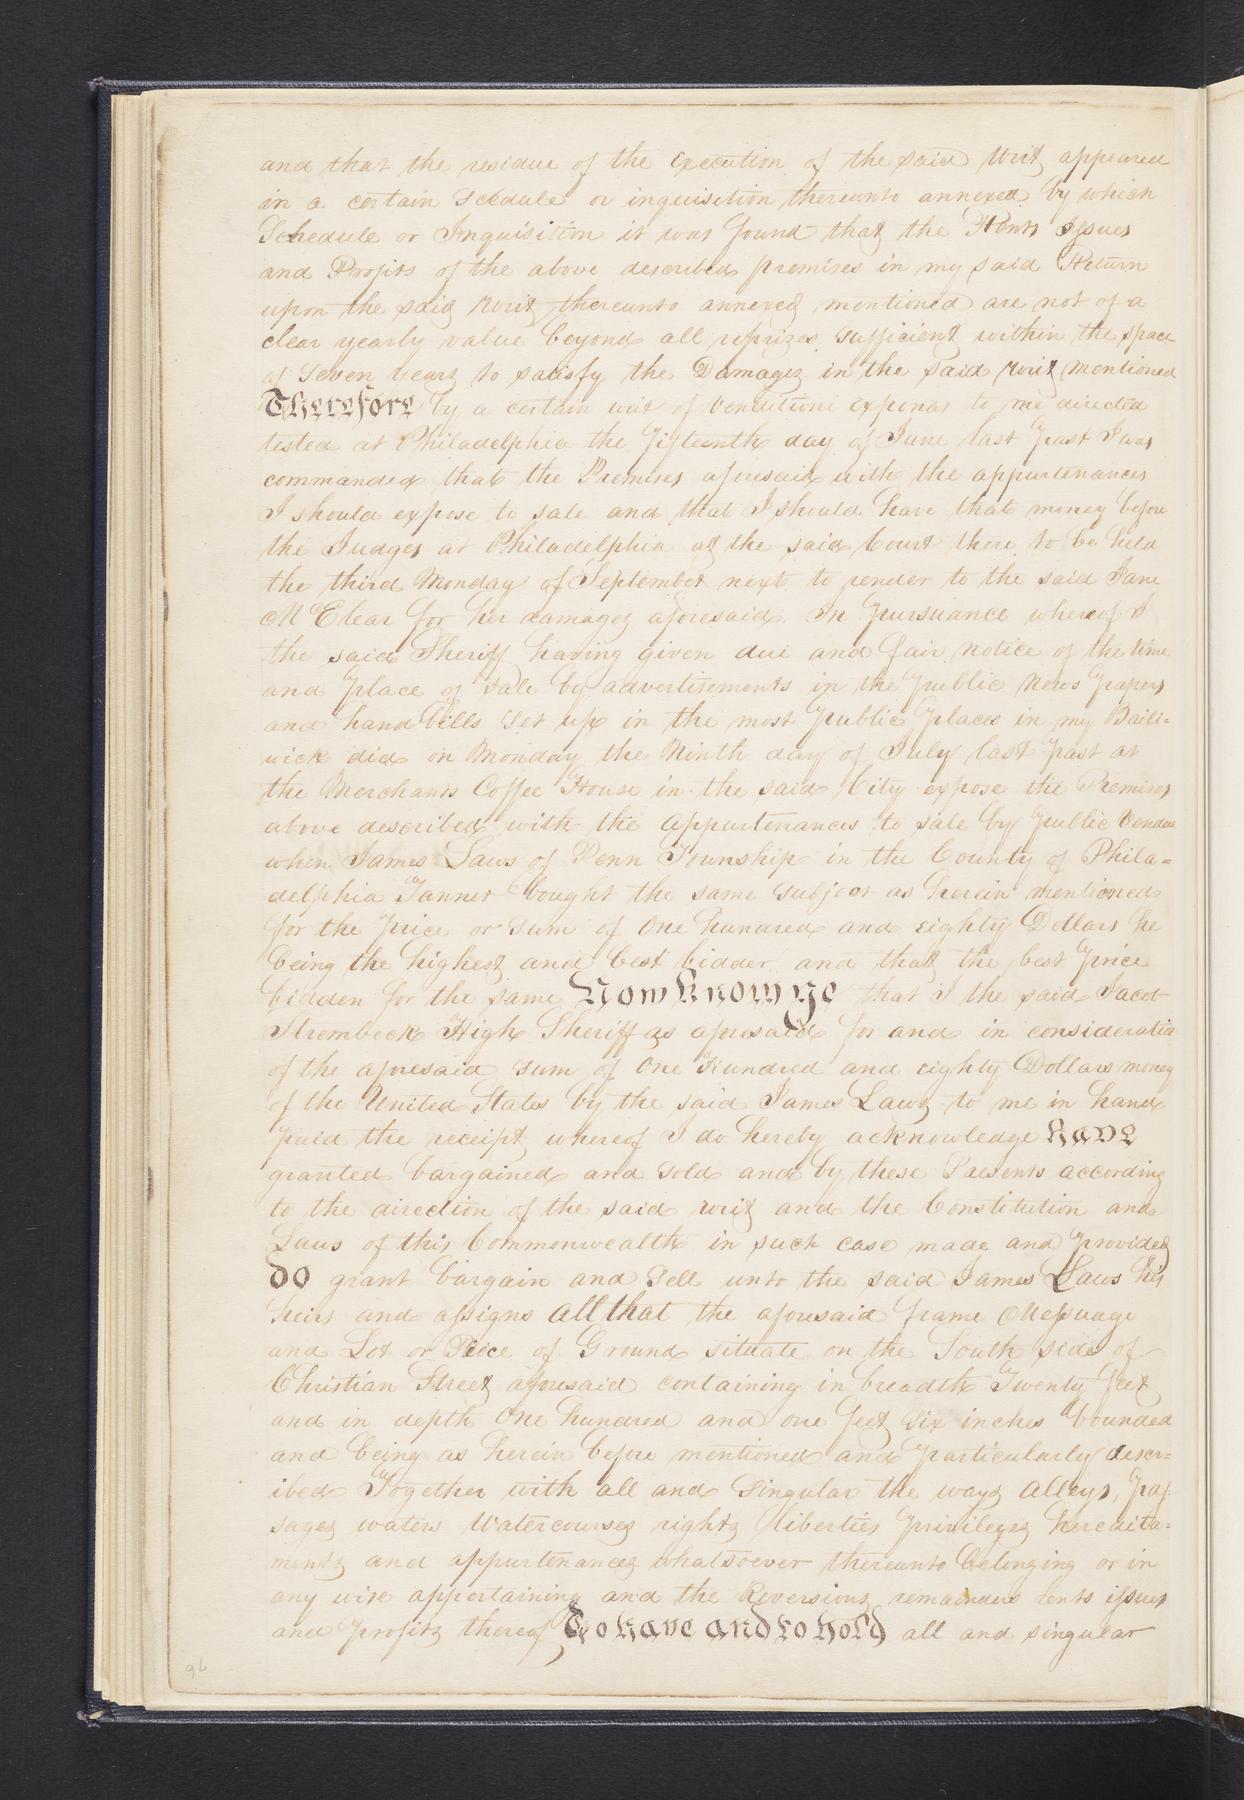 and that the residue of the Execution of the said Writ appeared
in a certain Scedule or inquisition thereunto annexed by which
Schedule or Inquisition it was found that the Rents Issues
and Profits of the above described premises in my said Return
upon the said Writ thereunto annexed mentioned are not of a
clear yearly value beyond all reprizes sufficient within the space
of Seven years to satisfy the Damages in the said Writ mentioned
Therefore by a certain writ of Venditioni exponas to me directed
tested at Philadelphia the fifteenth day of June last past I was
commanded that the Premises aforesaid with the appurtenances
I should expose to sale and that I should have that money before
the Judges at Philadelphia at the said Court there to be held
the third Monday of September next to render to the said Jane
McClear for her damages aforesaid. In pursuance whereof I
the said Sheriff having given due and fair notice of the time
and place of sale by advertisements in the public News papers
and hand bills set up in the most public places in my Baili=
wick did on Monday the Ninth day of July last past at
the Merchants Coffee House in the said City expose the Premises
above described with the appurtenances to sale by public Vendue
when James Laws of Penn Township in the County of Phila=
delphia Tanner bought the same subject as herein mentioned
for the price or sum of One hundred and eighty Dollars he
being the highest and best bidder and that the best price
bidden for the same Now Know ye that I the said Jacob
Strembeck High Sheriff as aforesaid for and in consideration
of the aforesaid sum of One Hundred and eighty Dollars money
of the United States by the said James Laws to me in hand
paid the receipt whereof I do hereby acknowledge have
granted bargained and sold and by these Presents according
to the direction of the said writ and the Constitution and
Laws of this Commonwealth in such case made and provided
Do grant bargain and sell unto the said James Laws his
heirs and assigns all that the aforesaid frame Messuage
and Lot or Peice of Ground situate on the South side of
Christian Street aforesaid containing in breadth Twenty feet
and in depth One hundred and one feet six inches bounded
and being as herein before mentioned and particularly descr=
ibed Together with all and Singular the ways alleys, pas
sages waters Watercourses rights liberties privileges heredita=
ments and appurtenances whatsoever thereunto belonging or in
any wise appertaining and the Reversions remainders rents issues
and profits thereof To have and to hold all and singular